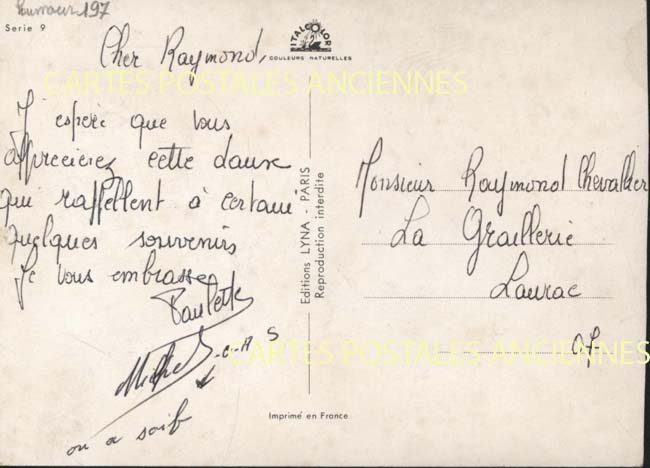 197
Serie 9
ITALCOLOR
COULEURS NATURELLES
Cher Raymond,
CARTES POSTALES ANCIENNES
J'espère que vous
apprecierez cette danse
qui rappellent à certains
quelques souvenirs
Je vous embrasse
Paulette
Michel
on a soif
Editions LYNA - PARIS
Reproduction interdite
Monsieur Raymond Chevallier
La Graillerie
Laurac
CARTES POSTALES ANCIENNES
Imprimé en France